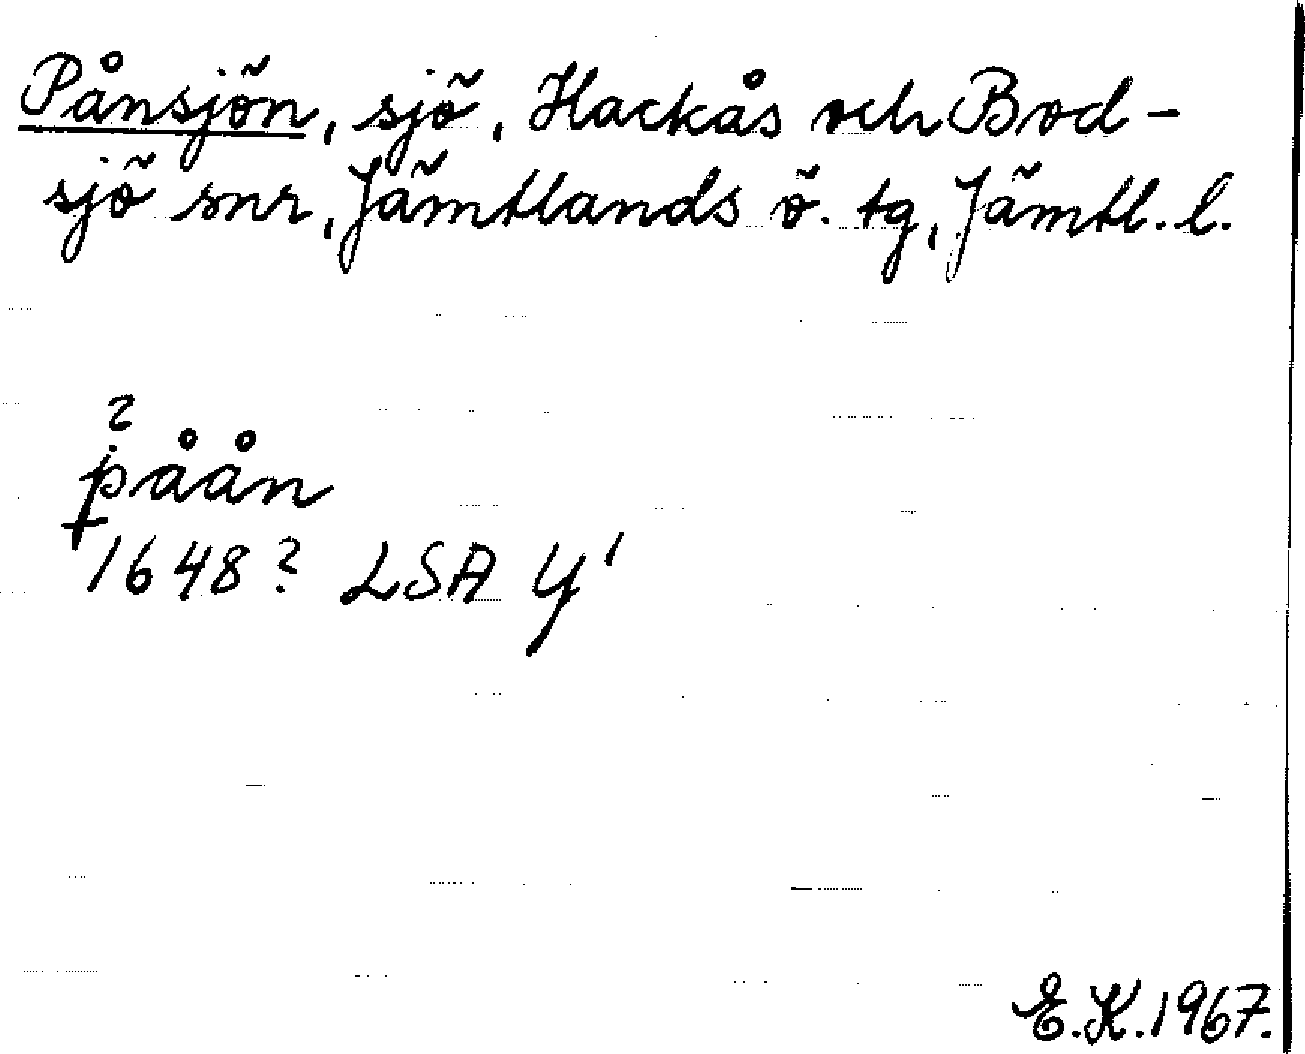 Pånsjön, sjö, Hackås och Bod-
sjö snr, Jämtlands ö. tg, Jämtl. l.
?
påån
1648? LSA Y¹
E.K. 1967.